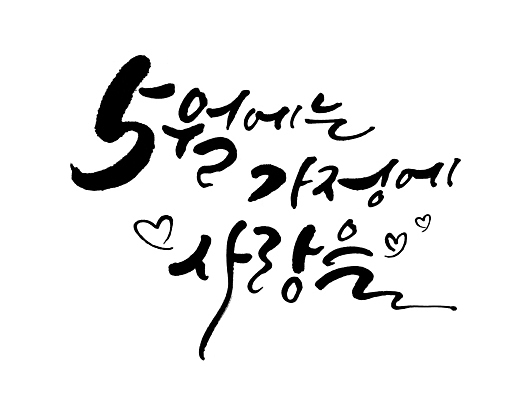 5월에는
가정에
사랑을